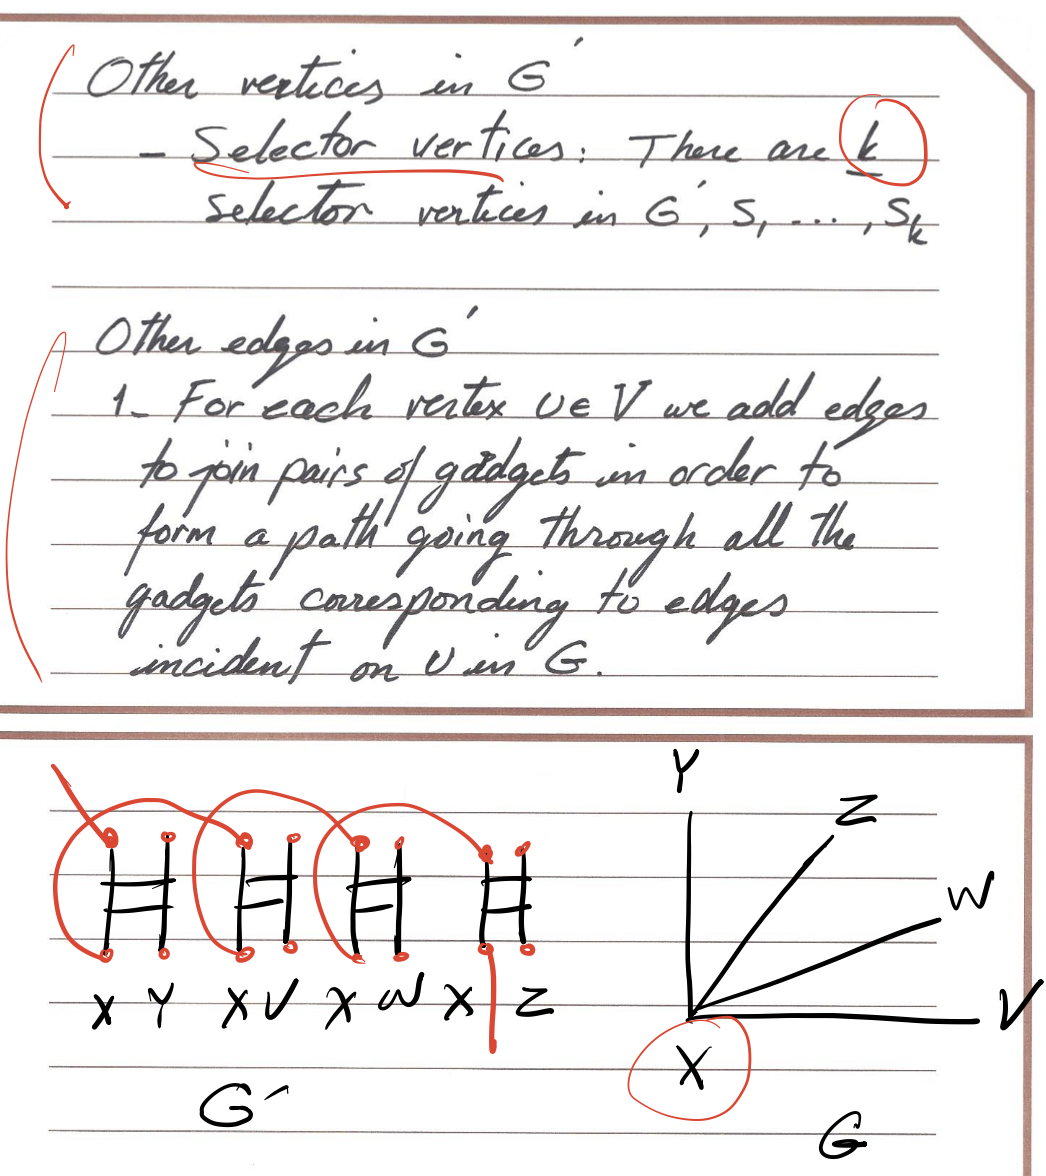 Other vertices in G'
- Selector vertices: There are k
selector vertices in G', S1 ..., Sk
Other edges in G'
1- For each vertex υ ∈ V we add edges
to join pairs of gadgets in order to
form a path going through all the
gadgets corresponding to edges
incident on υ in G.
Y
Z
W
V
X Y X V X W X Z
X
G'
G